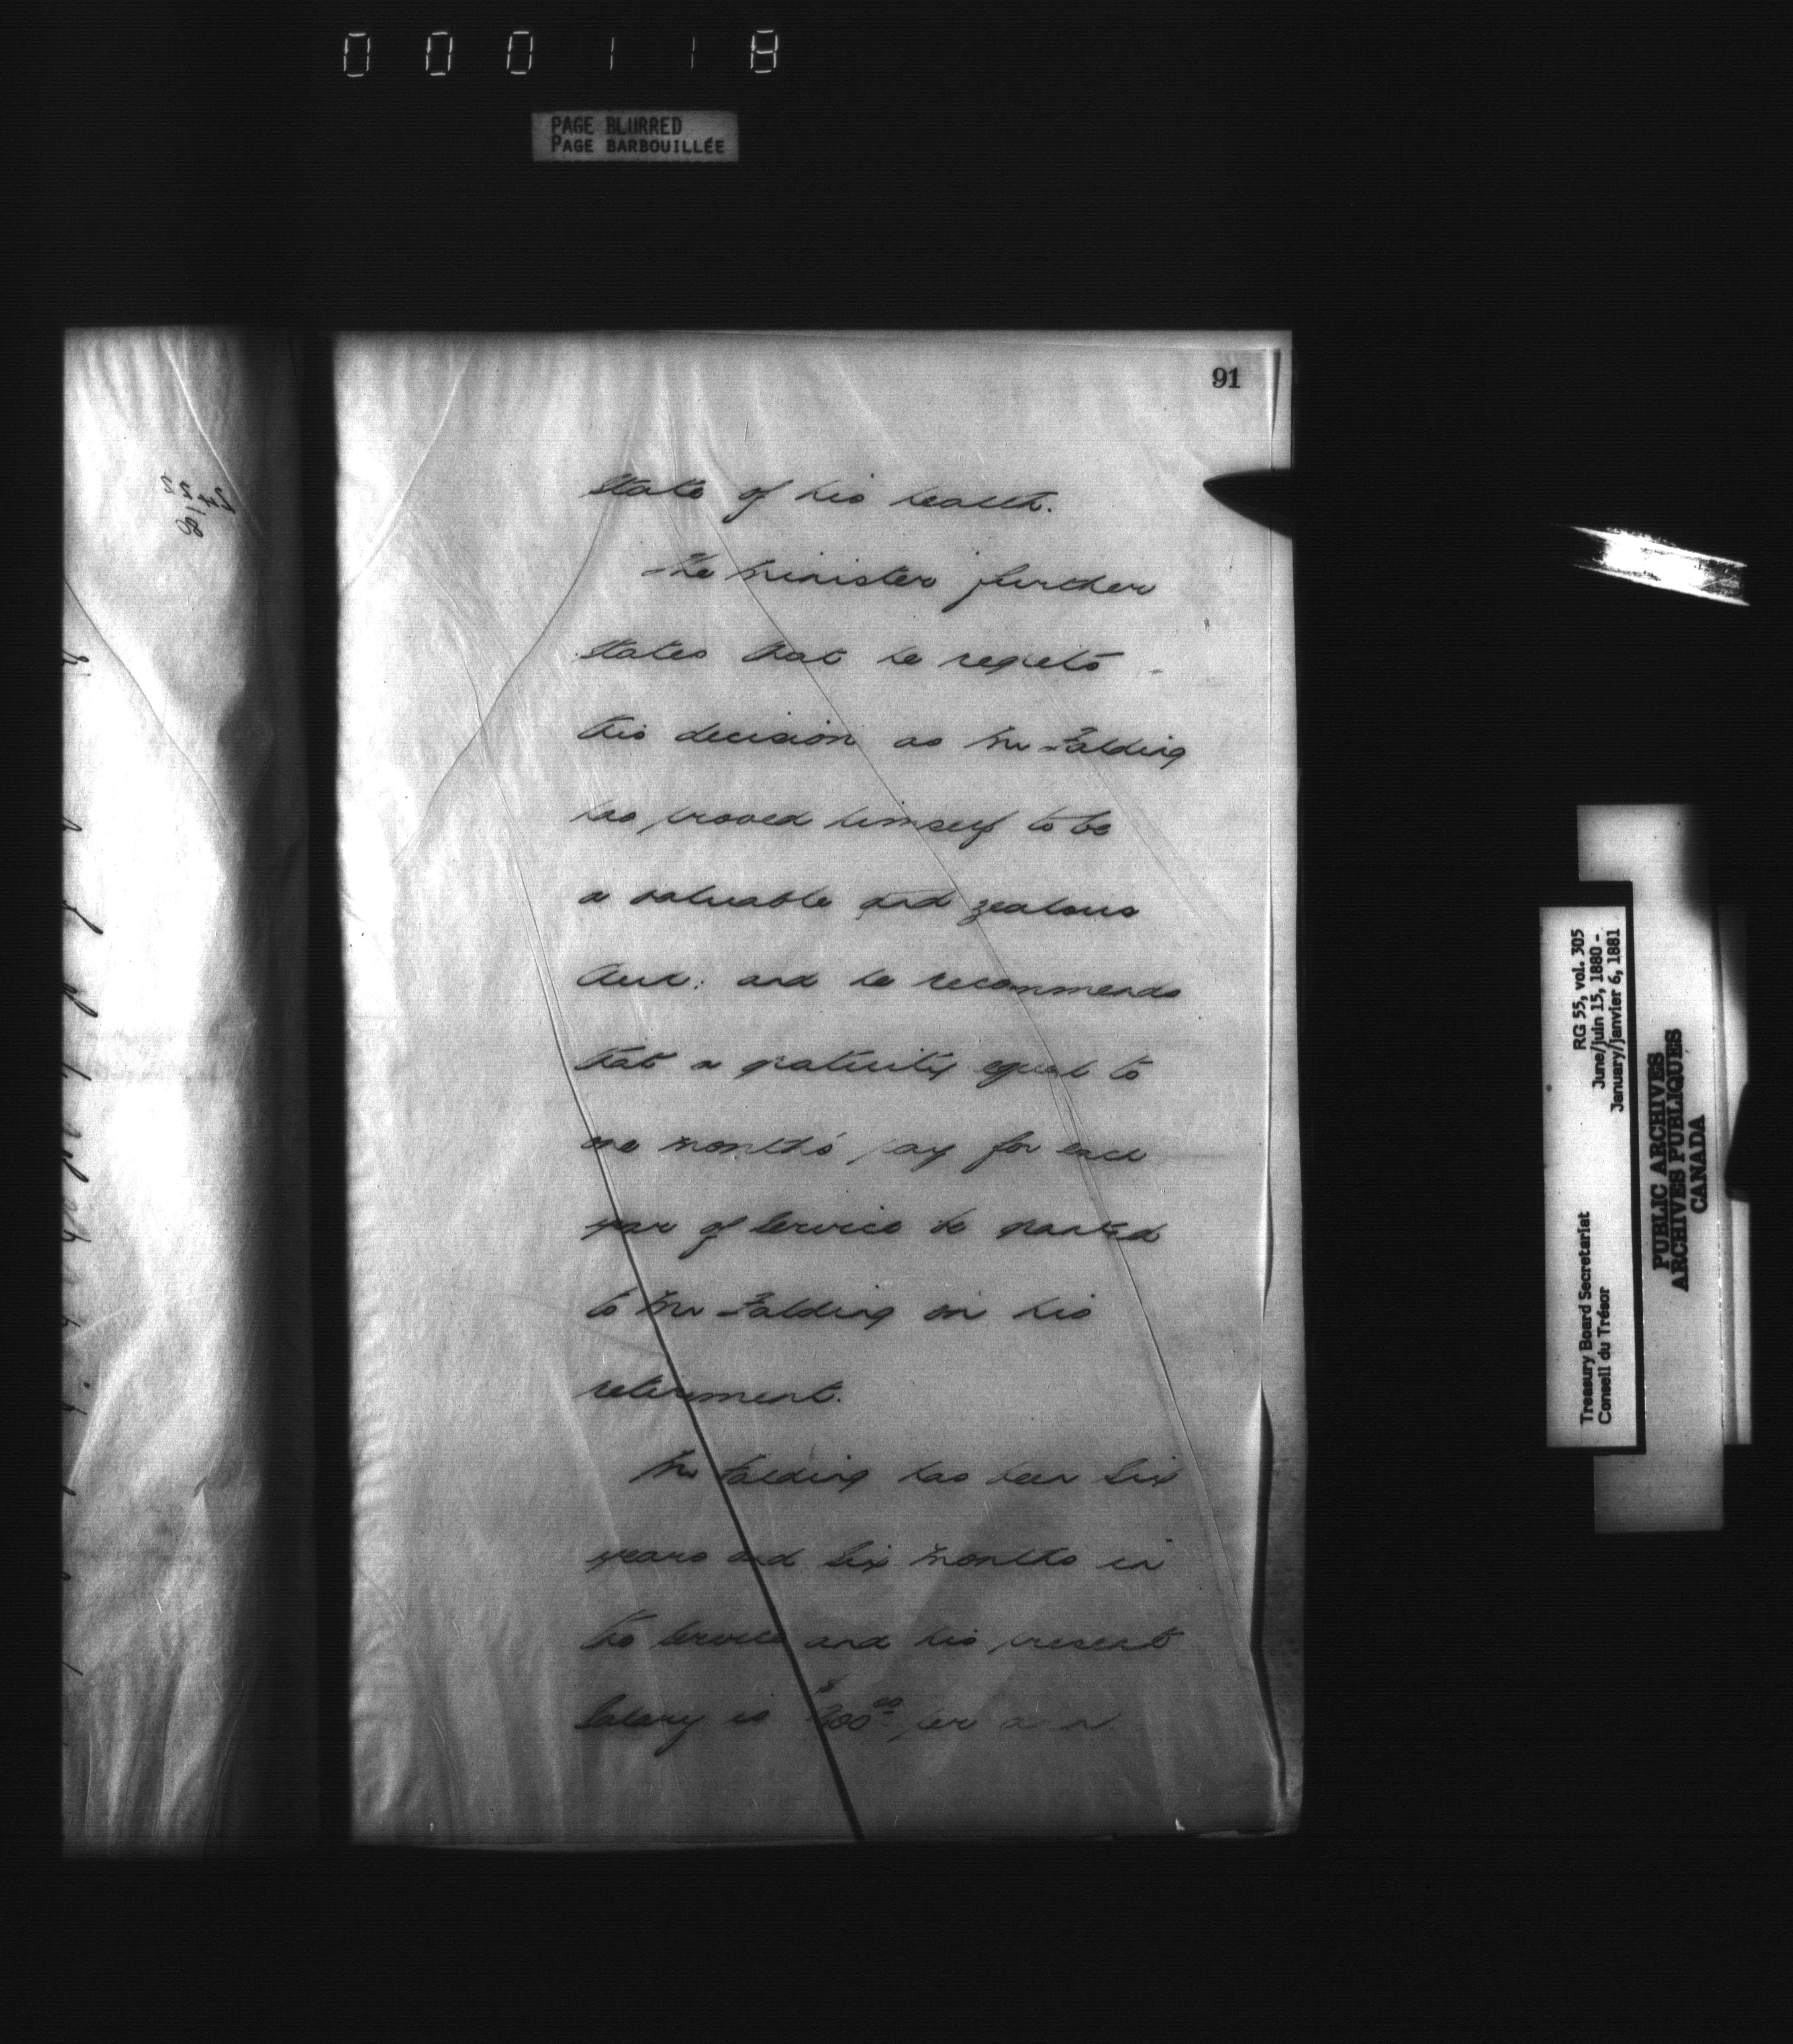 000118
PAGE BLURRED
PAGE BARBOUILLÉE
91
State of his health.
The Minister further
States that he regrets
this decision as Mr Falding
has proved himself to be
a valuable and zealous
and he recommends
that a gratuity equal to
one month's pay for each
year of Service be granted
to Mr Falding on his
retirement.
Mr Falding has been Six
years and Six Months in
the Service and his present
Salary is per
RG 55, vol. 305
June/juin 15, 1880 -
January/janvier 6, 1881
Treasury Board Secretariat
Conseil du Trésor
PUBLIC ARCHIVES
ARCHIVES PUBLIQUES
CANADA